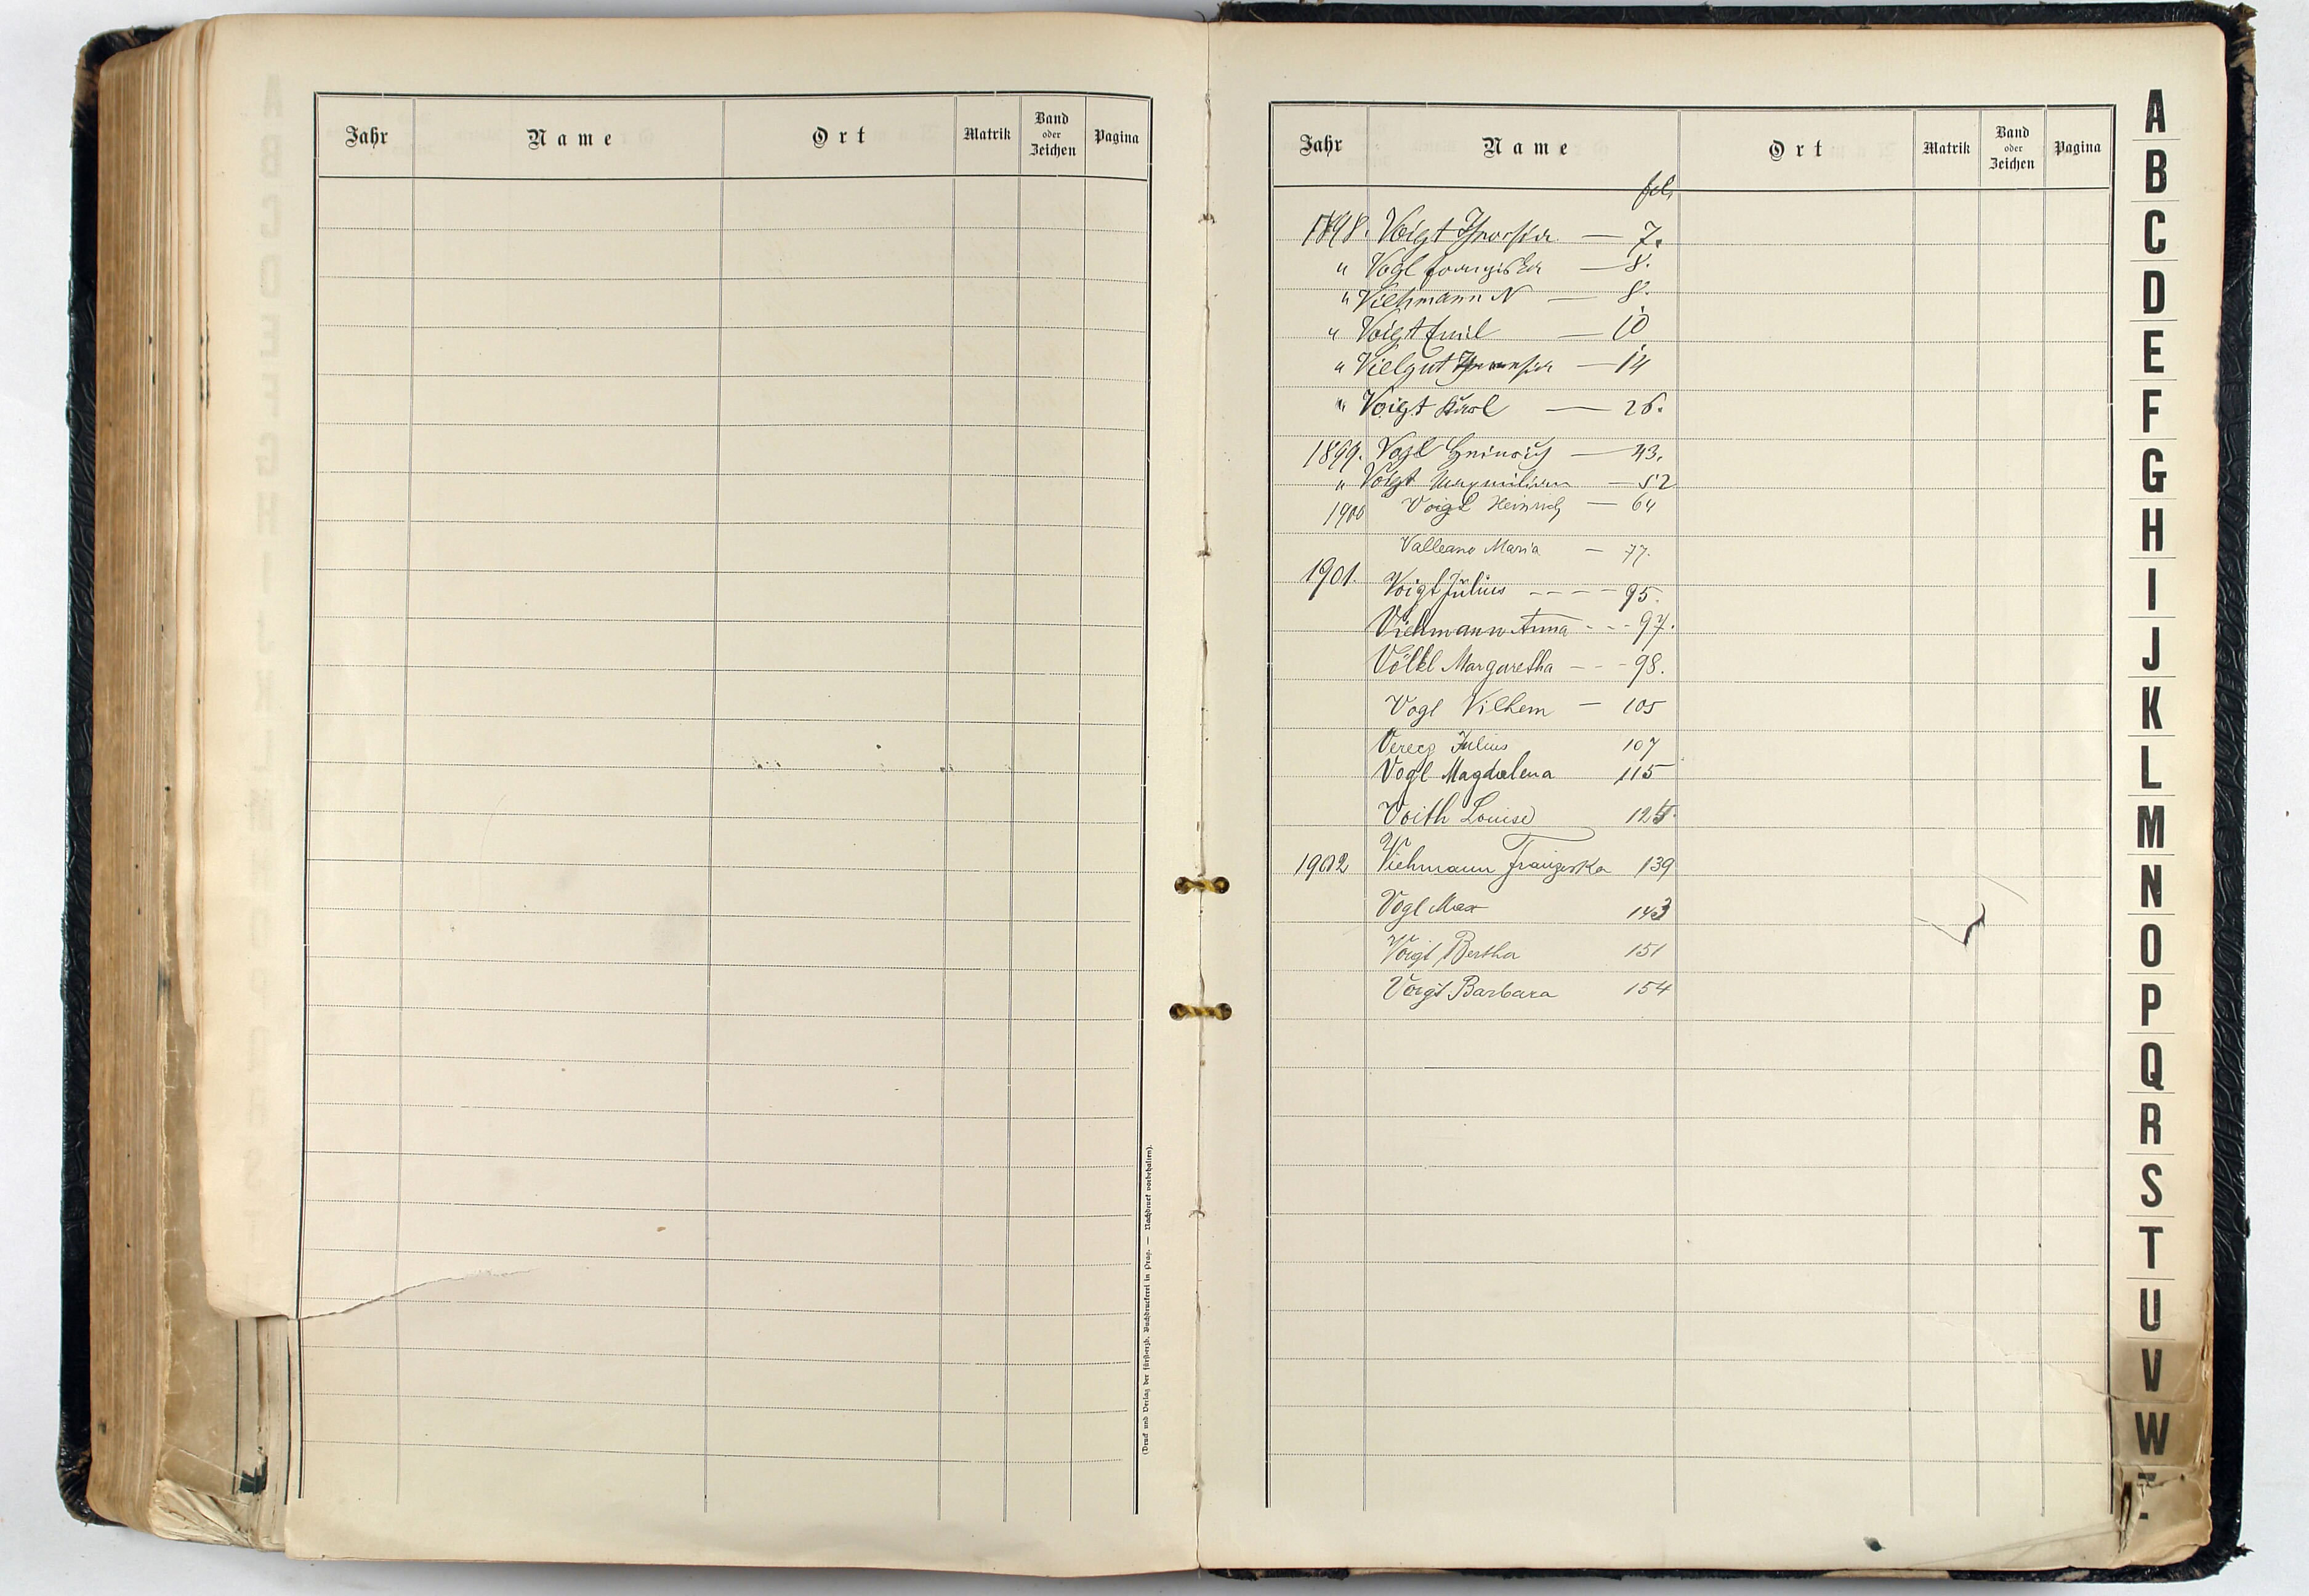 Jahr Name Ort Matrik Band oder Zeichen Pagina
(Druck und Verlag der fürsterzb. Buchdruckerei in Prag. — Nachdruck vorbehalten).
Jahr Name Ort Matrik Band oder Zeichen Pagina
fol.
1898. Voigt — 7.
" Vogl Franziska — 8.
" Viehmann N — 8.
" Voigt Emil — 10
" Vielgut — 14
" Voigt Karl — 26.
1899. Vogl Heinrich — 43.
" Voigt Maximilian — 52
1900 Voigt Heinrich — 64
Valleano Maria — 77.
1901. Voigt Julius - - - - 95.
Viehmann Anna - - - 97.
Völkl Margaretha - - - 98.
Vogl Vilhem — 105
Julius 107
Vogl Magdalena 115
Voith Louise
1902 Viehmann Franziska 139
Vogl Max 143
Voigt Bertha 151
Voigt Barbara 154
A
B
C
D
E
F
G
H
I
J
K
L
M
N
O
P
Q
R
S
T
U
V
W